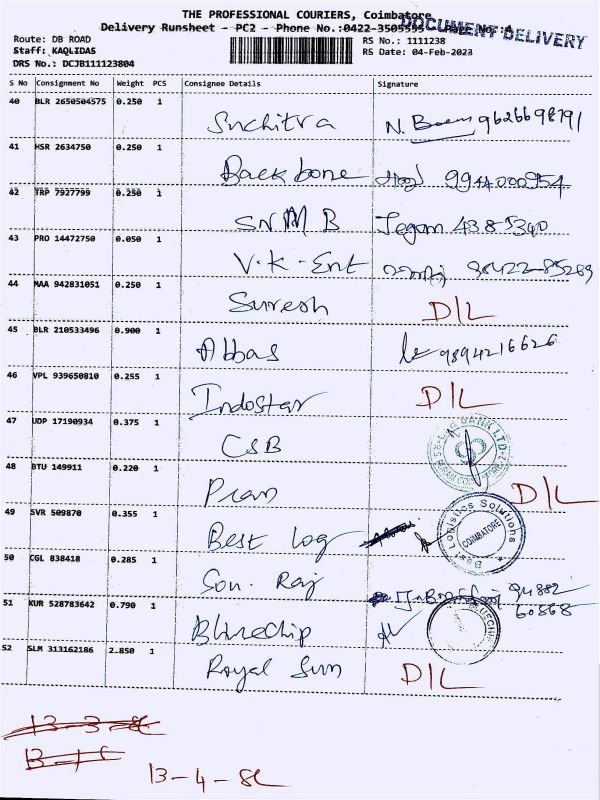 THE PROFESSIONAL COURIERS, Coimbatore
DOCUMENT DELIVERY
Delivery Runsheet - PC2 - Phone No.:0422-3505555 Page No.:4
Route: DB ROAD
RS No.: 1111238
Staff: KAQLIDAS
RS Date: 04-Feb-2023
DRS No.: DCJB111123804
S No Consignment No Weight PCS Consignee Details Signature
40 BLR 2650504575 0.250 1
Suchitra N. 9626698791
41 HSR 2634750 0.250 1
Backbone 9944000954
42 TRP 7927799 0.250 1
SNMB Jegan 4385340
43 PRO 14472750 0.050 1
V.K-Ent 98422-85289
44 MAA 942831051 0.250 1
Suresh D/L
45 BLR 210533496 0.900 1
Abbas 9894216626
46 VPL 939650810 0.255 1
Indostar D/L
47 UDP 17190934 0.375 1
CSB
48 BTU 149911 0.220 1
Pran D/L
49 SVR 509870 0.355 1
Best Log
Best Logistics Solutions
COIMBATORE
50 CGL 838418 0.285 1
Son. Raj 94882
60868
51 KUR 528783642 0.790 1
Bluechip
BLUECHIP
52 SLM 313162186 2.850 1
Royal Sun D/L
13-4-8L